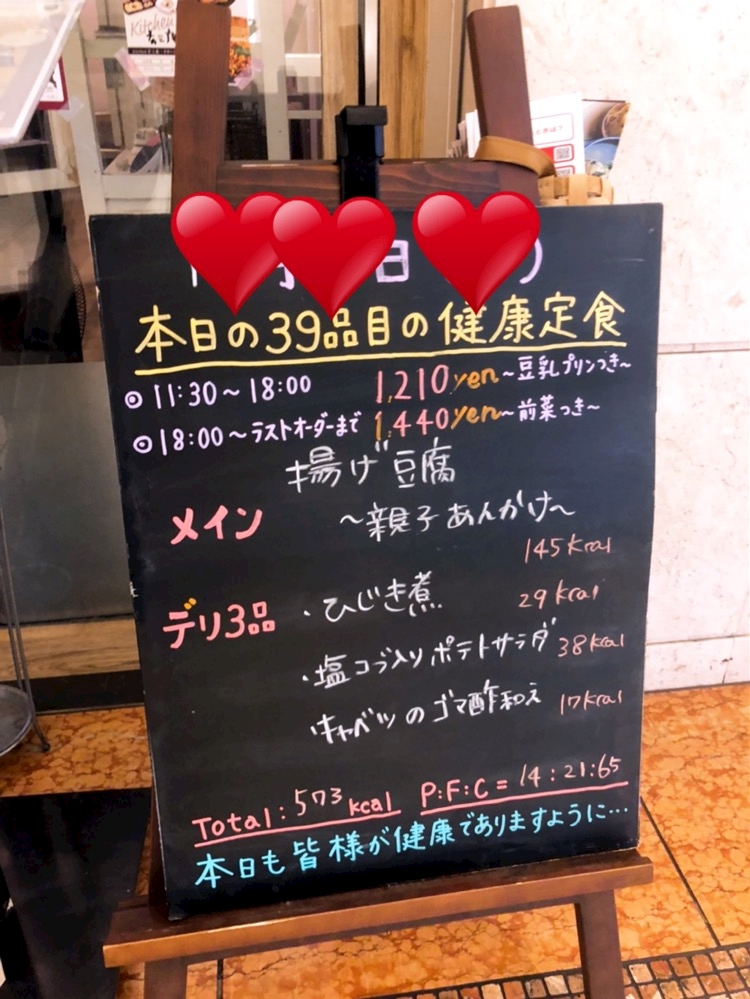 Kitchen
日
)
本日の39品目の健康定食
◎11:30～18:00 1,210yen～豆乳プリンつき～
◎18:00～ラストオーダーまで 1,440yen～前菜つき～
揚げ豆腐
メイン ～親子あんかけ～
145kcal
デリ3品 ・ひじき煮 29kcal
・塩コブ入りポテトサラダ 38kcal
・キャベツのゴマ酢和え 17kcal
Total:573kcal P:F:C=14:21:65
本日も皆様が健康でありますように…